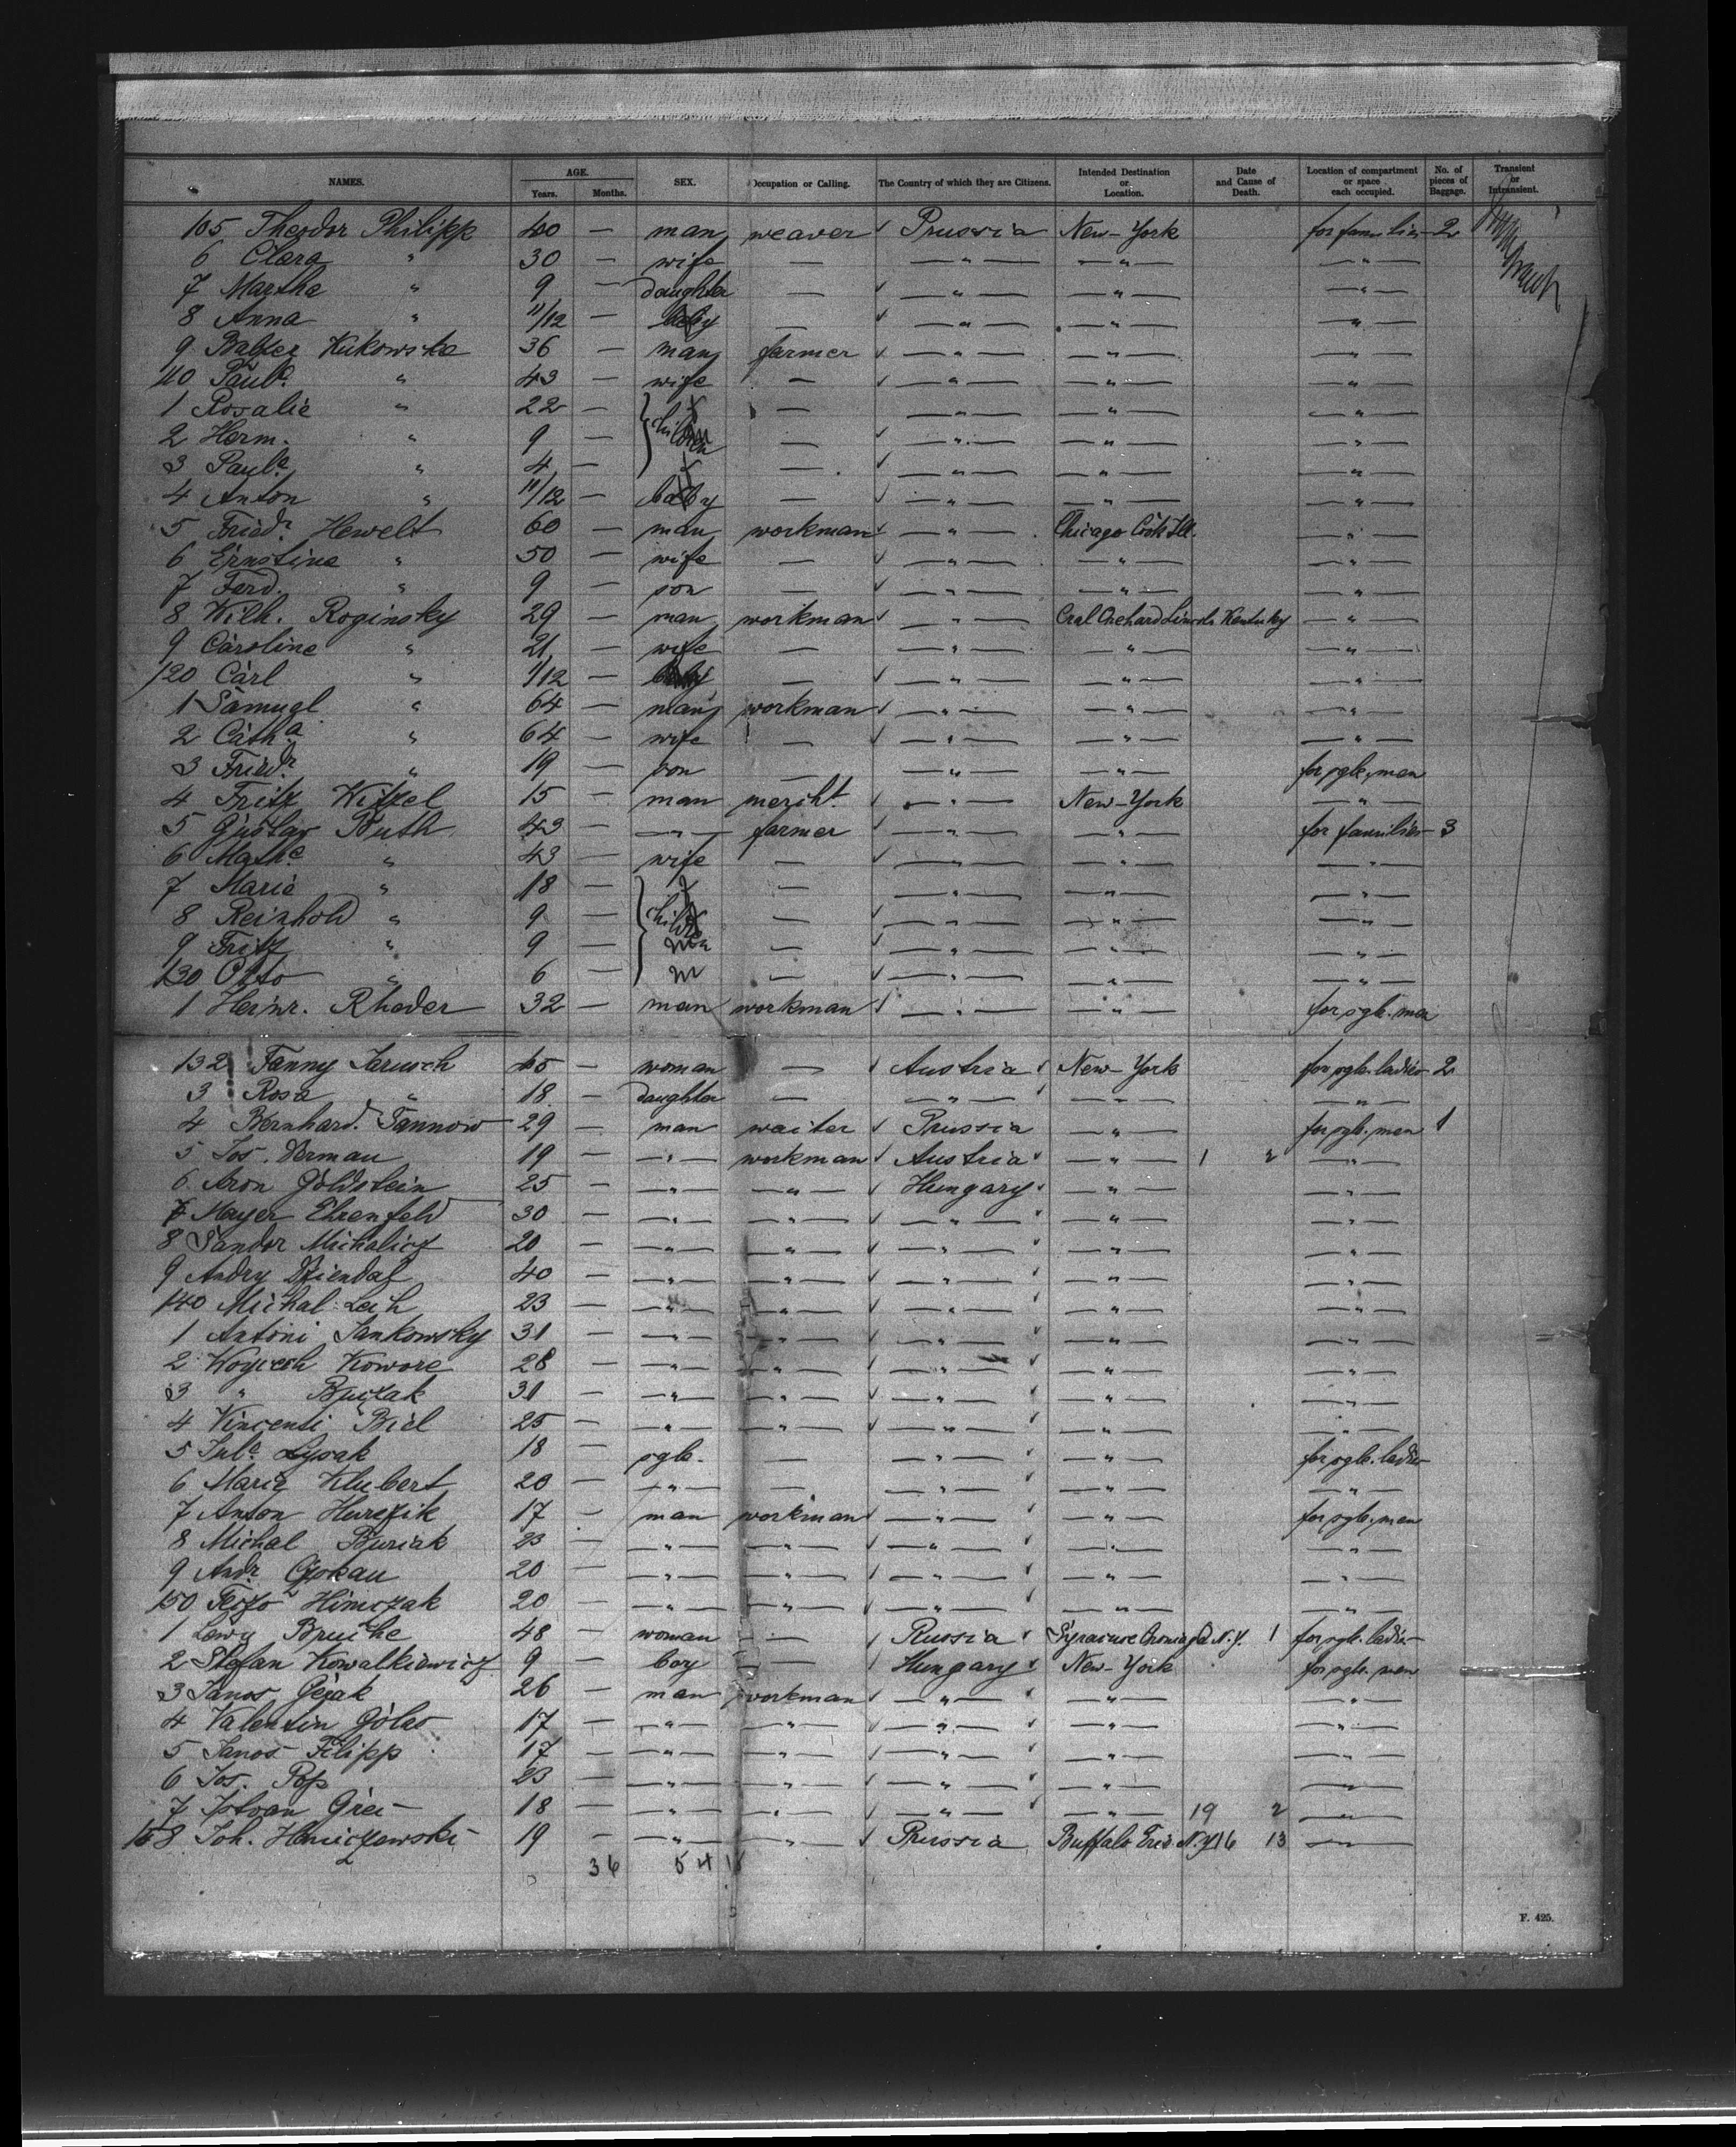 NAMES. AGE. Years. Months. SEX. Occupation or Calling. The Country of which they are Citizens. Intended Destination or Location. Date and Cause of Death. Location of compartment or space each occupied. No. of pieces of Baggage. Transient or Intransient.
105 Theodor Philipp 40 — man weaver ✓ Prussia New-York for families 2
6 Clara " 30 — wife — —"— —"— —"—
7 Martha " 9 — daughter — ✓ —"— —"— —"—
8 Anna " 11/12 — baby — ✓ —"— —"— —"—
9 Balzer Kukowska 36 — man farmer ✓ —"— —"— —"—
110 Paul.ª " 43 — wife — ✓ —"— —"— —"—
1 Rosalie " 22 — children — —"— —"— —"—
2 Herm. " 9 — — ✓ —"— —"— —"—
3 Paul.ª " 4 — — ✓ —"— —"— —"—
4 Anton " 11/12 — baby — ✓ —"— —"— —"—
5 Fried.r Hewelt 60 — man workman ✓ —"— Chicago Cook Ill. —"—
6 Ernstine " 50 — wife — ✓ —"— —"— —"—
7 Ferd. " 9 — son — ✓ —"— —"— —"—
8 Wilh. Roginsky 29 — man workman ✓ —"— Cral Orchard Lincoln Kentucky —"—
9 Caroline " 21 — wife — ✓ —"— —"— —"—
120 Carl " 1/12 — baby — ✓ —"— —"— —"—
1 Samuel " 64 — man workman ✓ —"— —"— —"—
2 Cath.ª " 64 — wife — ✓ —"— —"— —"—
3 Fried.r " 19 — son — —"— —"— for sgle. men
4 Fritz Witzel 15 — man mercht. ✓ —"— New-York —"—
5 Gustav Buth 43 — —"— farmer ✓ —"— —"— for families 3
6 Math.e " 43 — wife — ✓ —"— —"— —"—
7 Marie " 18 — children — —"— —"— —"—
8 Reinhold " 9 — — ✓ —"— —"— —"—
9 Fritz " 9 — m — ✓ —"— —"— —"—
130 Otto " 6 — m — ✓ —"— —"— —"—
1 Heinr. Rhoder 32 — man workman ✓ —"— —"— for sgle. men
132 Fanny Jarusch 45 — woman — ✓ Austria ✓ New-York for sgle. ladies 2
3 Rosa " 18 — daughter — —"— ✓ —"— —"—
4 Bernhard. Tannow 29 — man waiter ✓ Prussia —"— for sgle. men 1
5 Jos. Herman 19 — —"— workman ✓ Austria ✓ —"— 1 2 —"—
6 Aron Goldstein 25 — —"— —"— ✓ Hungary ✓ —"— —"—
7 Mayer Ehrenfeld 30 — —"— —"— ✓ —"— ✓ —"— —"—
8 Sandor Michalicz 20 — —"— —"— ✓ —"— ✓ —"— —"—
9 Andry Dziendaf 40 — —"— —"— ✓ —"— ✓ —"— —"—
140 Michal Lech 23 — —"— —"— ✓ —"— ✓ —"— —"—
1 Antoni Jankowsky 31 — —"— —"— ✓ —"— ✓ —"— —"—
2 Woyciech Kowore 28 — —"— —"— ✓ —"— ✓ —"— —"—
3 " Buczak 31 — —"— —"— ✓ —"— ✓ —"— —"—
4 Vincenti Biel 25 — —"— —"— ✓ —"— ✓ —"— —"—
5 Jul.ª Lysak 18 — sgle. — —"— ✓ —"— for sgle. ladies
6 Maria Klubert 20 — —"— — —"— ✓ —"— —"—
7 Anton Hurezik 17 — man workman ✓ —"— ✓ —"— for sgle. men
8 Michal Buriak 23 — —"— —"— ✓ —"— ✓ —"— —"—
9 And.r 20 — —"— —"— ✓ —"— ✓ —"— —"—
150 Himczak 20 — —"— —"— ✓ —"— ✓ —"— —"—
1 Lewy Bruche 48 — woman — ✓ Russia ✓ Syracuse Onongd N.Y. 1 for sgle. ladies
2 Stefan Kowalkiewicz 9 — boy — ✓ Hungary ✓ New-York for sgle. men
3 Janos Gezak 26 — man workman ✓ —"— ✓ —"— —"—
4 Valentin Golas 17 — —"— —"— ✓ —"— ✓ —"— —"—
5 Janos Filipp 17 — —"— —"— ✓ —"— ✓ —"— —"—
6 Jos. Pop 23 — —"— —"— ✓ —"— ✓ —"— —"—
7 Istvan Grei 18 — —"— —"— ✓ —"— ✓ —"— 19 2 —"—
158 Joh. Haniczewski 19 — —"— —"— ✓ Prussia Buffalo Erie N.Y. 16 13 —"—
36 54 18
F. 425.